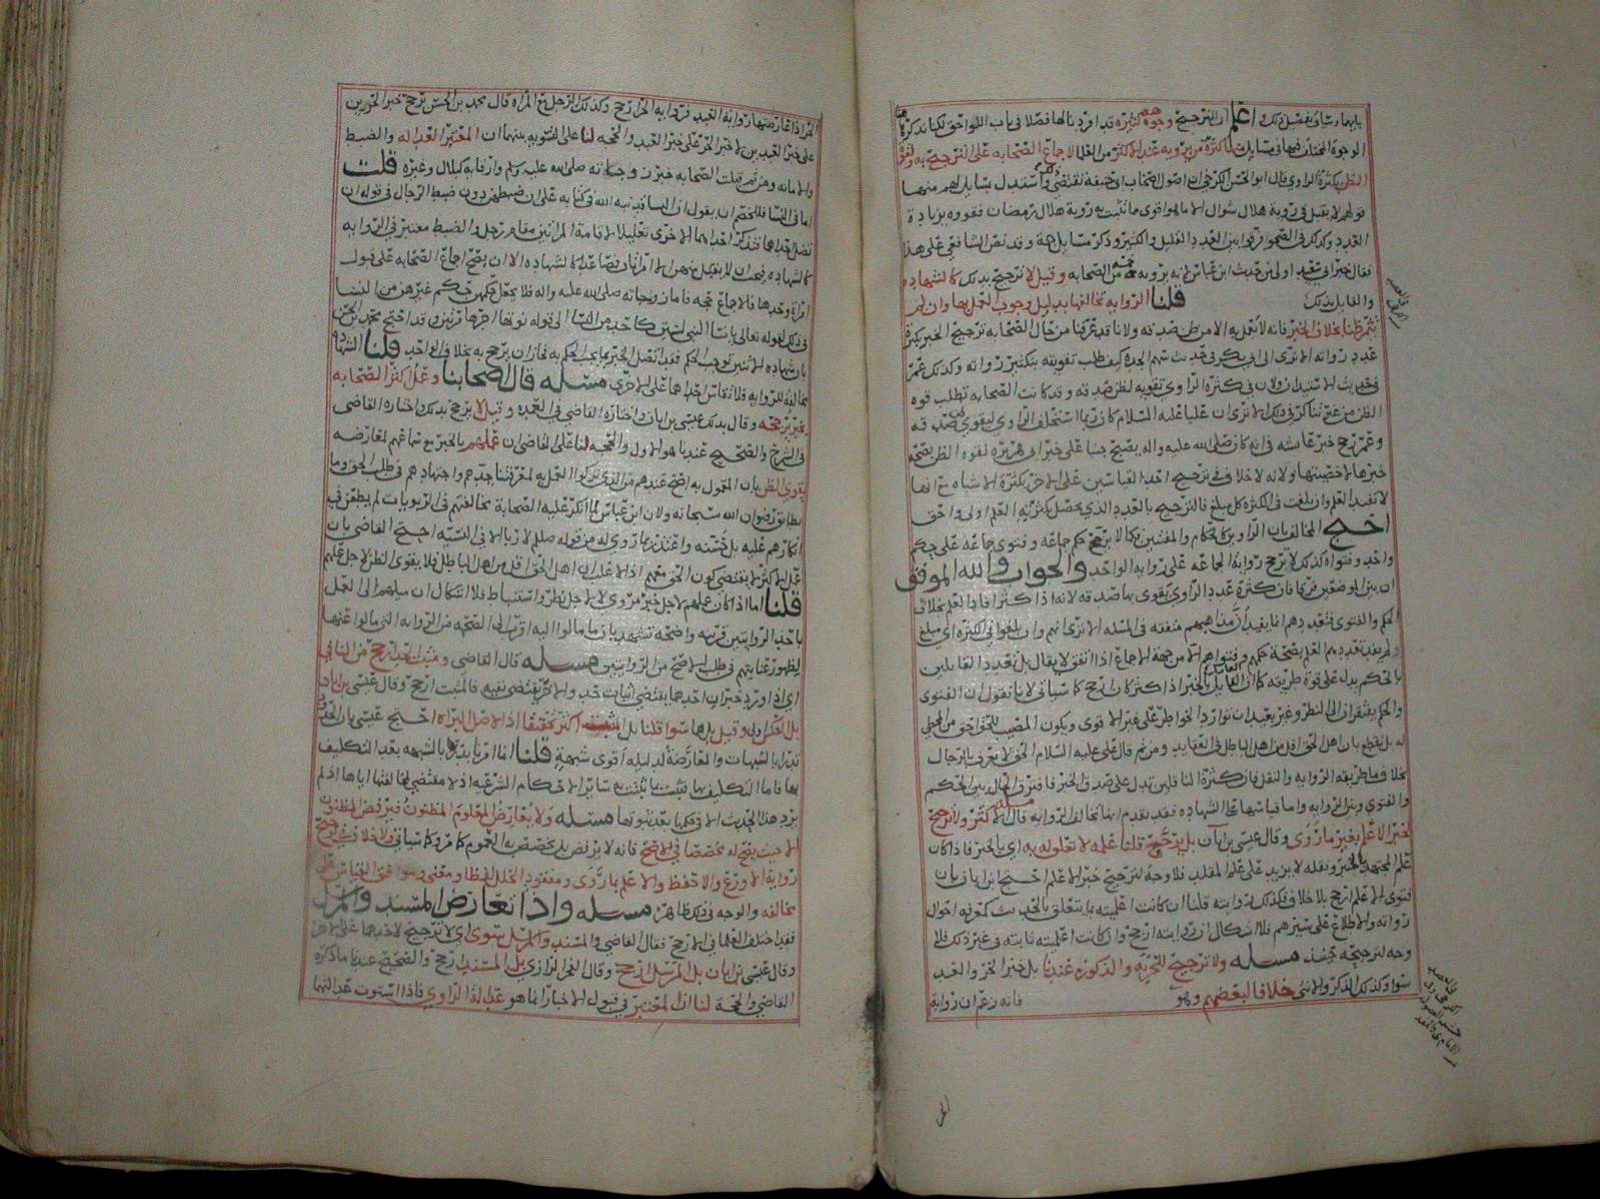 بابهما وسيأتي تفصيل ذلك واعلم ان الترجيح وجوه كثيره قد افردنا لها فصلا في باب اللواحق لكنا نذكر هنا
الوجوه المختلف فيها في مسايل كثرة من يرويه عند الاكثر من العلما لاجماع الصحابه على الترجيح به ولقوة
الظن بكثرة الراوي قال ابو الحسن الكرخي ان اصول اصحاب ابي حنيفه تقتضي واستدل بمسايل لهم منها
قولهم لا يقبل في روية هلال شوال الا ما هو اقوى ما تثبت به روية هلال رمضان فقووه بزيادة
العدد وكذلك في الصحو فرقوا بين العدد القليل والكثير وذكر مسايل جمة وقد نص الشافعي على هذا
فقال خبر ابي سعيد اولى من حديث ابن عباس لانه يرويه خمسه من الصحابه وقيل لا ترجيح بذلك كالشهاده
والقايل بذلك قلنا الروايه تخالفها بدليل وجوب العمل بها وان لم
تثمر ظنا بخلاف الخبر فانه لا يعمل به الا من ظن صدقه ولانا قد عرفنا من حال الصحابه ترجيح الخبر بكثرة
عدد رواته الا ترى الى ابي بكر في حديث سهم الجده كيف طلب تقويته بتكثير رواته وكذلك عمر
في حديث الاستيذان ولان في كثرة الراوي تقويه لظن صدقه وقد كانت الصحابه تطلب قوه
الظن من غير تناكر في ذلك الا ترى ان عليا عليه السلام كان ربما استحلف الراوي ليقوى ظن صدقه
وعمر رجح خبر عايشه في انه كان صلى الله عليه واله يصبح جنبا على خبر ابي هريره لقوة الظن بصحة
خبرها لاخصيتها ولانه لا خلاف في ترجيح احد القياسين على الاخر بكثرة الاشباه مع انها
لا تفيد العلم وان بلغت في الكثره كل مبلغ فالترجيح بالعدد الذي يحصل بكثرته العلم اولى واحق
احتج المخالف بان الراوين كالحكام والمفتين فكما لا يرجح حكم جماعه وفتوى جماعه على حكم
واحد وفتواه كذلك لا ترجح رواية الجماعه على رواية الواحد والجواب والله الموفق
ان بين الموضعين فرقا فان كثرة عدد الراوي يقوى بها صدقه لانه اذا كثر افاد العلم بخلاف
الحكم والفتوى فتعددهم انما يفيد ان مذاهبهم متفقه في المسله الا ترى انهم وان بلغوا في الكثره اي مبلغ
لم يفد تعددهم العلم بصحة حكمهم وفتواهم الا من جهة الاجماع اذا اتفق لا يقال بل تعدد القايلين
بالحكم يدل على قوة طريقه كما ان القايل بالخبر اذا كثر كان ارجح كما سيأتي لانا نقول ان الفتوى
والحكم يفتقران الى النظر وغير بعيد ان توارد الخواطر على غير الاقوى ويكون المصيب للحق احق من المخطي
له بل نقطع بان اهل الحق اقل من اهل الباطل في العقايد ومن ثم قال علي عليه السلام الحق لا يعرف بالرجال
بخلاف ما طريقه الروايه والنقل فان كثرة الناقلين تدل على صدق الخبر فافترق الحال بين الحكم
والفتوى وبين الروايه واما قياسها على الشهاده فقد تقدم انها تخالف الروايه مسله قال الاكثر ولا ترجيح
لخبر الاعلم بغير ما روى وقال عيسى بن ابان بل يرجح قلنا علمه لا تعلق له به اي بالخبر فاذا كان
علم المجتهد بالخبر ونقله لا يزيد على علم المقلد فلا وجه لترجيح خبر الاعلم احتج ابن ابان بان
فتوى الاعلم ارجح بلا خلاف فكذلك روايته قلنا ان كانت اعلميته بما يتعلق بالحديث كمعرفة احوال
رواته والاطلاع على سيرهم فلا اشكال ان روايته ارجح وان كانت اعلميته ثابته في غير ذلك فلا
وجه لترجيحه حينئذ مسله ولا ترجيح بالحريه والذكوره عندنا بل خبر الحر والعبد
سوا وكذلك الذكر والانثى خلافا لبعضهم وهو فانه زعم ان رواية
الحر اذا عارضتها رواية العبد فرواية الحر ارجح وكذلك الرجل مع المراه قال محمد بن الحسن يرجح خبر الحرين
على خبر العبدين لا خبر الحر على خبر العبد والحجه لنا على التسويه بينهما ان المعتبر العداله والضبط
والامانه ومن ثم قبلت الصحابه خبر زوجاته صلى الله عليه وسلم وارقايه كبلال وغيره قلت
اما في النسا فللخصم ان يقول ان الله قد نبه الله في كتابه على ان ضبطهن دون ضبط الرجال في قوله ان
تضل احداهما فتذكر احداهما الاخرى تعليلا لاقامة المراتين مقام رجل والضبط معتبر في الروايه
كالشهاده فيجب ان لا يقبل منهن الا اثنتان فصاعدا كالشهاده الا ان يصح اجماع الصحابه على قبول
امراة وحدها فالاجماع حجه فاما زوجاته صلى الله عليه واله فلا يحمل حكمهن حكم غيرهن من النسا
في ذلك لقوله تعالى يا نسا النبي لستن كاحد من النسا الى قوله نوتها اجرها مرتين وقد احتج محمد بن الحسن
بان شهادة الاثنين توجب الحكم فقد اتصل الخبر بما يجب الحكم به فجاز ان يرجح به بخلاف الواحد قلنا الشهاده
مخالفة للروايه فلا تقاس احداهما على الاخرى مسله قال اصحابنا وعمل اكثر الصحابه
بخبر يرجحه وقال بذلك عيسى بن ابان واختاره القاضي في العمده وقيل لا يرجح بذلك واختاره القاضي
في الشرح والصحيح عندنا هو الاول والحجه لنا على القاضي ان عملهم بالخبر مع سماعهم لمعارضه
يقوى الظن بان المعمول به اصح عندهم من الذي تركوا العمل به لمعرفتنا جدهم واجتهادهم في طلب الحق وما
يطابق رضوان الله سبحانه ولان ابن عباس لما انكر عليه الصحابة مخالفتهم في الربويات لم يطعن في
انكارهم عليه بل حسنه واعتذر بما روي له من قوله صلعم لا ربا الا في النسيه احتج القاضي بان
عمل الاكثر لا يقتضي كون الحق معهم اذ الاغلب ان اهل الحق اقل من اهل الباطل فلا يقوى الظن لاجل عملهم
قلنا اما اذا كان عملهم لاجل خبر مروي لا لاجل نظر واستنباط فلا اشكال ان ميلهم الى العمل
باحد الروايتين قرينه واضحه تشهد بان ما مالوا اليه اقرب الى الصحه من الروايه التي مالوا عنها
لظهور عنايتهم في طلب الاصح من الروايتين مسله قال القاضي ومثبت الحد ارجح من النافي
اي اذا ورد خبران احدهما يقتضي اثبات حد والاخر يقتضي نفيه فالمثبت ارجح وقال عيسى بن ابان
بل العكس اولى وقيل بل هما سوا قلنا بل المثبت اكثر تحقيقا اذ الاصل البراه احتج عيسى بان الحد
تدرا بالشبهات والمعارضة لدليله اقوى شبهة قلنا انما امرنا بدرئها بالشبهه بعد التكليف
بها فاما التكليف بها فيثبت بما يثبت به ساير الاحكام الشرعيه اذ لا مقتضي لمخالفتها اياها اذ لم
يرد هذا الحديث الا في حكمها بعد ثبوتها مسله ولا يعارض المعلوم المظنون فيرفض المظنون
الا حيث يصح له مخصصا في الاصح فانه لا يرفض بل يخصص به العموم كما مر وكما سيأتي ولا خلاف في ترجيح
رواية الاورع والاحفظ والاعلم بما روى ومفقود الخلل لفظا ومعنى وموافق القياس على
مخالفه والوجه في ذلك ظاهر مسله واذا تعارض المسند والمرسل
فقد اختلف العلما في الارجح فقال القاضي والمسند والمرسل سوى اي لا ترجيح لاحدهما على الاخر
وقال عيسى بن ابان بل المرسل ارجح وقال الفخر الرازي بل المسند ارجح والصحيح عندنا ما ذكره
القاضي والحجة لنا ان المعتبر في قبول الاخبار انما هو عدالة الراوي فاذا استوت عدالتهما